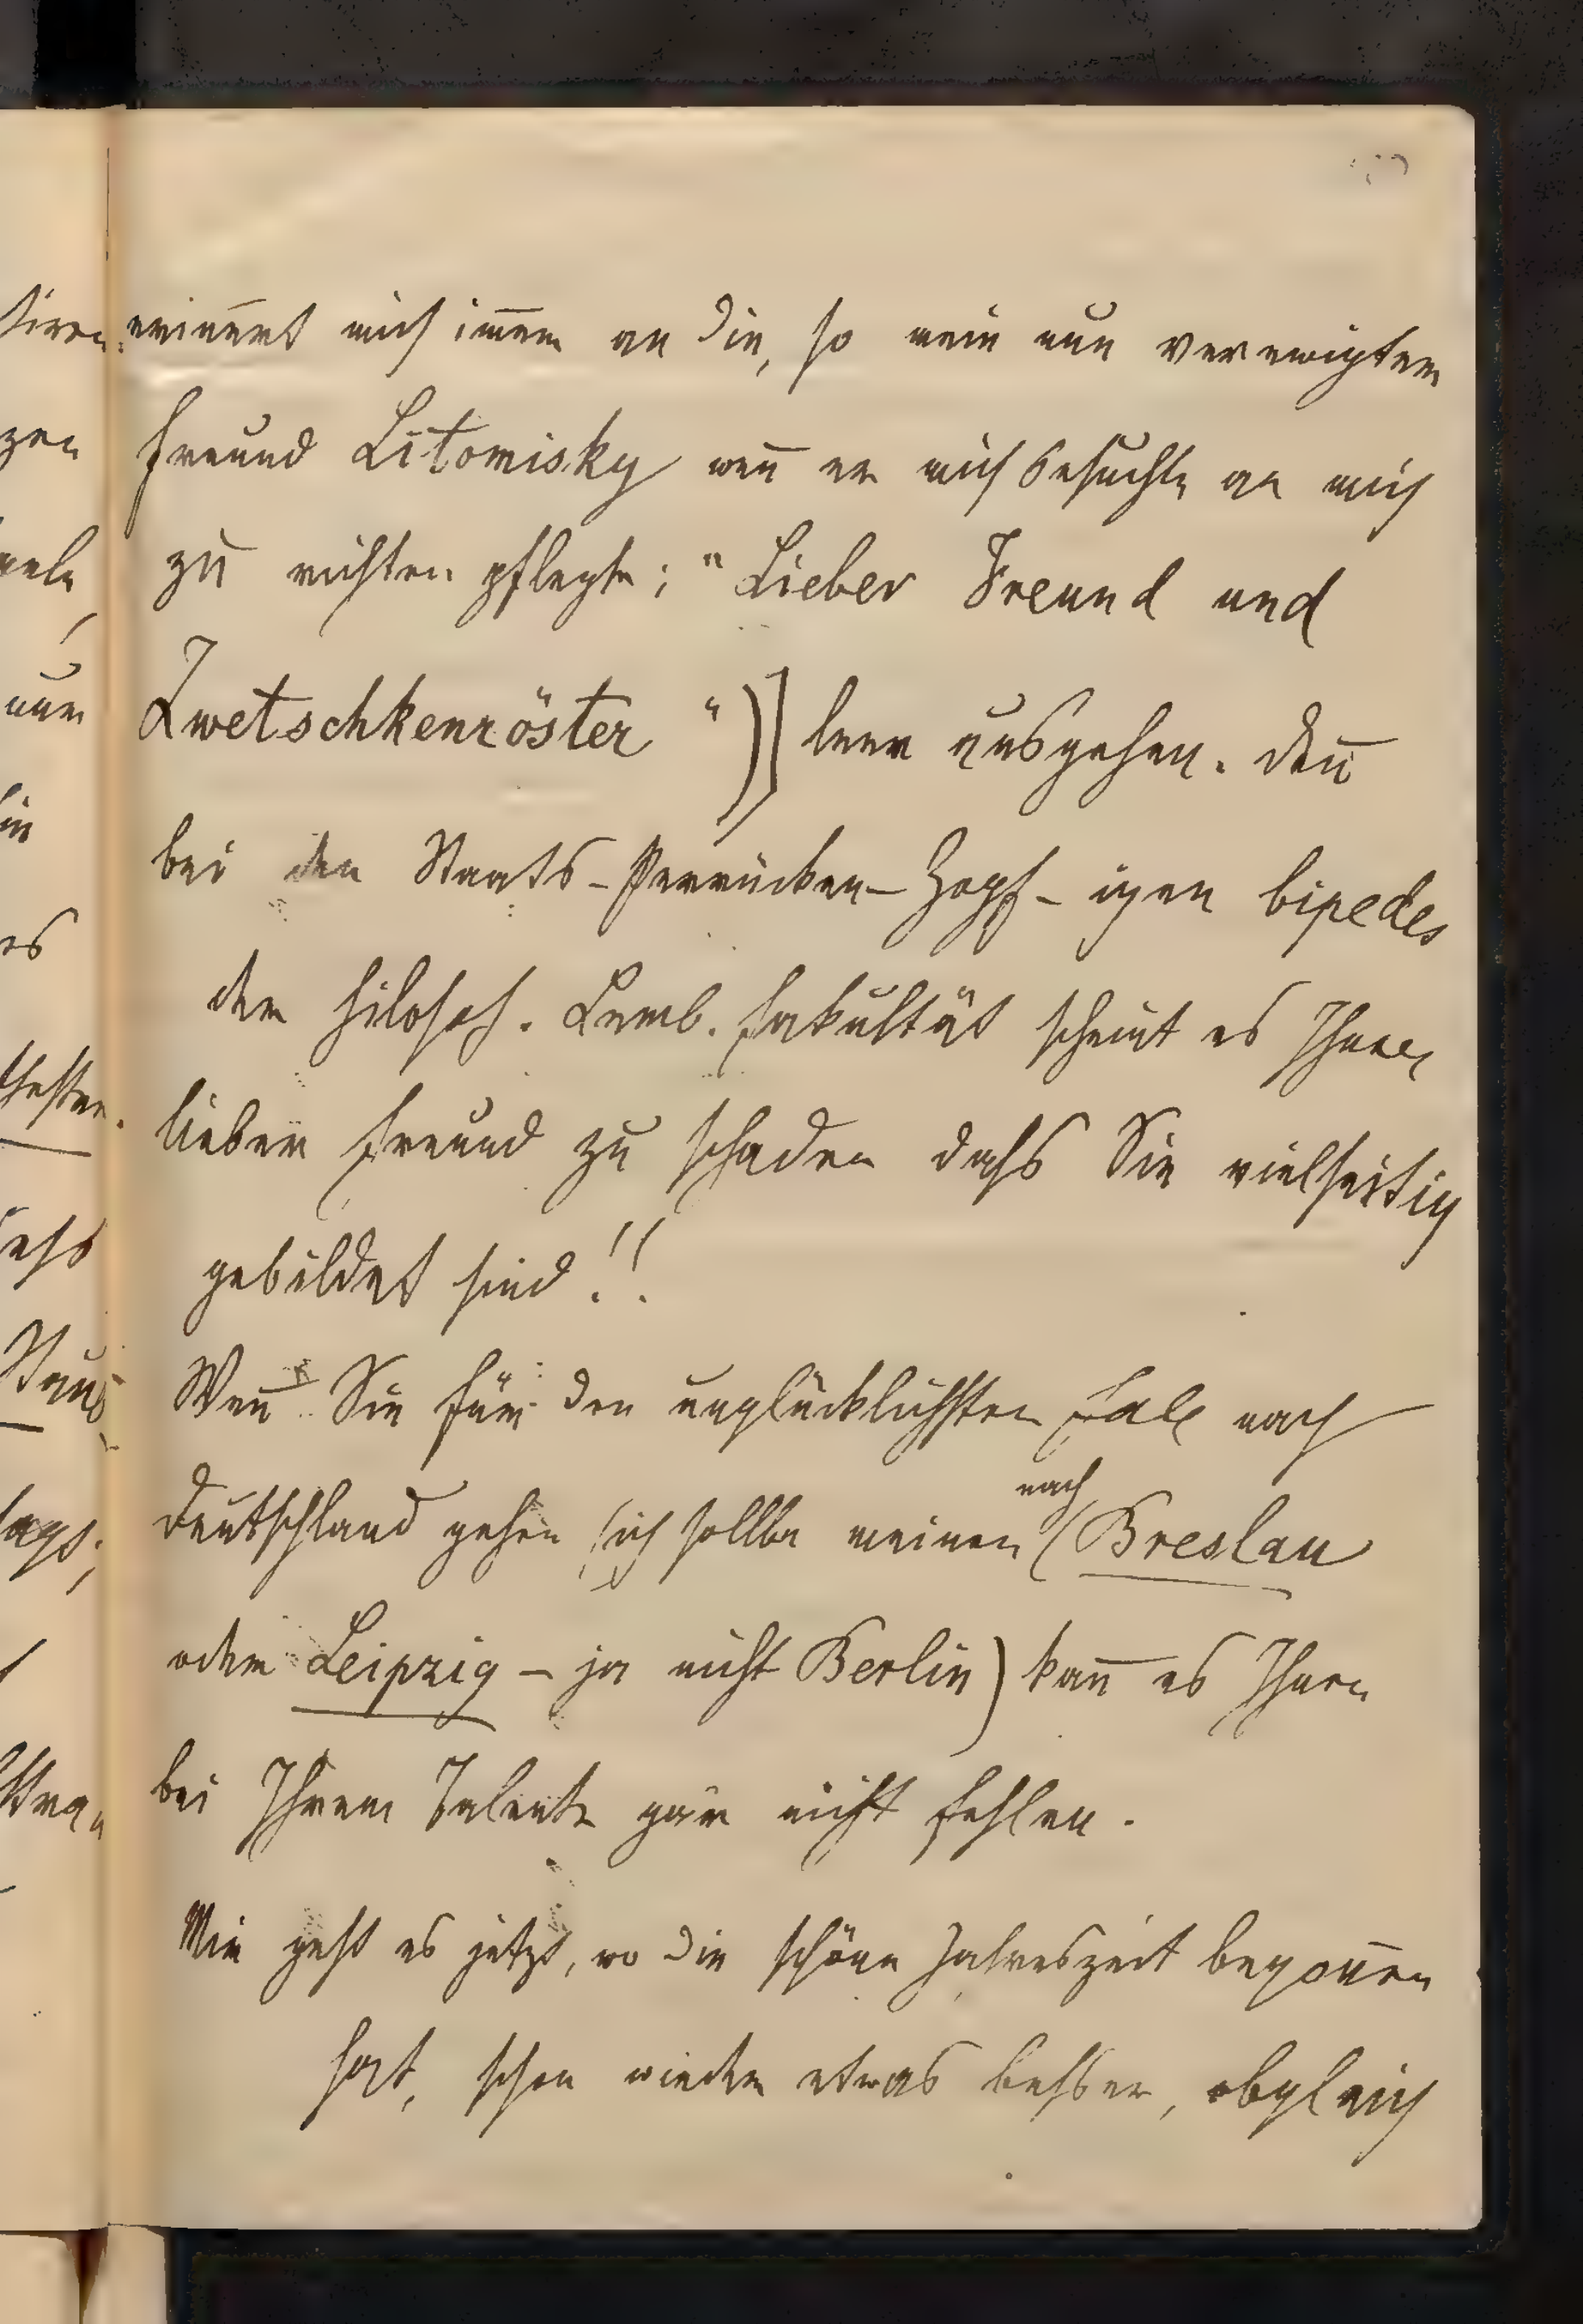 erin̄ert mich im̄er an die, so mein nun verewigter
Freund Litomisky wen̄ er mich besuchte an mich
zu richten pflegte; "Lieber Freund und
Zwetschkenröster")] leer ausgehen. Den̄
bei den Staats-Perrücken-Zopf-igen bipedes
der filosof. Lemb. Fakultät scheint es Ihnen
lieber Freund zu schaden dahs Sie vielseitig
gebildet sind!!
Wen̄ Sie für den unglücklichsten Fall nach
Deutschland gehen (ich sollte meinen nach (Breslau
oder Leipzig – ja nicht Berlin) kan̄ es Ihnen
bei Ihrem Talente gar nicht fehlen.
Mir geht es jetzt, wo die schöne Jahreszeit begon̄en
hat, schon wieder etwas behser, obgleich
zen
nun
es